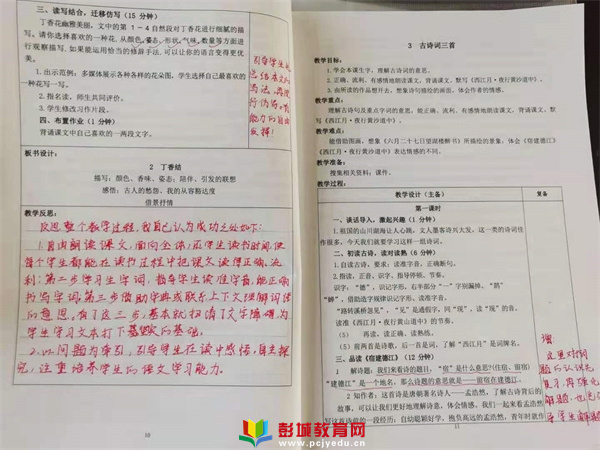 三、读写结合，迁移仿写（15 分钟）
丁香花幽雅美丽，文中的第 1－4 自然段对丁香花进行细腻的描
写。请你选择喜欢的一种花，从颜色、姿态、形状、气味、数量等方面进
行观察描写，如果能运用恰当的修辞手法，可以让你的语言变得更优
美。
1.出示范例：多媒体展示各种各样的花朵图，学生选择自己最喜欢的
一种花写一写。
2.指名读，师生共同评价。
3.学生修改习作片段。
四、布置作业（1 分钟）
背诵课文中自己喜欢的一两段文字。
引导学生
总结本文的
写法，再进
行仿写，
能力的自由
发挥！
板书设计：
2 丁香结
描写：颜色、香味、姿态；陪伴、引发的联想
感悟：古人的愁怨、我的从容豁达度
借景抒情
教学反思：
反思整个教学过程，我自己认为成功之处如下：
1.自由朗读课文，面向全体，还学生读书时间，使
每个学生都能在读书过程中把课文读得正确、流
利；第二步学习生字词，指导学生读准字音，能正确
书写字词。第三步借助字典或联系上下文理解词语
的意思，有了这三步，基本就扫清了文字障碍，为
学生学习文本打下坚实的基础。
2.以问题为牵引，引导学生在读中感悟，自主探
究，注重培养学生的语文学习能力。
10
3 古诗词三首
教学目标：
1.学会本课生字，理解古诗词的意思。
2.正确、流利、有感情地朗读课文，背诵课文，默写《西江月·夜行黄沙道中》。
3.由所读的作品想开去，想象诗句描绘的画面，体会作者的情感。
教学重点：
理解古诗句及重点字词的意思。能正确、流利、有感情地朗读课文，背诵课文，
默写《西江月·夜行黄沙道中》。
教学难点：
能借助图画，想象《六月二十七日望湖楼醉书》所描绘的景象；体会《宿建德江》
《西江月·夜行黄沙道中》表达情感的不同。
教学准备：
搜集相关资料；课件。
教学过程：
教学设计（主备）
复备
第一课时
一、谈话导入，激起兴趣（1 分钟）
1.祖国的山川湖海让人心驰，文人墨客诗兴大发，这一类的诗词佳
作很多，今天我们就要学习这样一组诗词。
二、初读古诗，读对读熟（6 分钟）
1.自读古诗，要求：读准字音、正确断句。
2.指读，正音，识字，指导停顿、节奏。
识字：“德”，识记字形，右半部分“一”字别漏掉，“鹊”
“蝉”，借助造字规律识记字形、读准字音。
“路转溪桥忽见”，“见”是通假字，同“现”，读“现”的音。
读准《西江月·夜行黄沙道中》的节奏。
（5） 再读，读正确、读熟练。
（5）前两首是诗歌，后一首是词，了解“西江月”是词牌名。
三、品读《宿建德江》（12 分钟）
1 解诗题：我们来看诗的题目，“宿”是什么意思?(住宿、留宿)
“建德江”是一个地名，那么诗题的意思就是——留宿在建德江。
2 知作者：这首诗是唐朝著名诗人——孟浩然，了解古诗背后的
故事，可以让我们更好地理解诗意，体会情感。我们一起来看孟浩然
写这首诗前的一段经历：自幼聪颖好学，抱负高远的孟浩然，青年时就作
11
增
这里对诗
题的认识先
解题，也是
彭城教育网
www.pcjyedu.cn